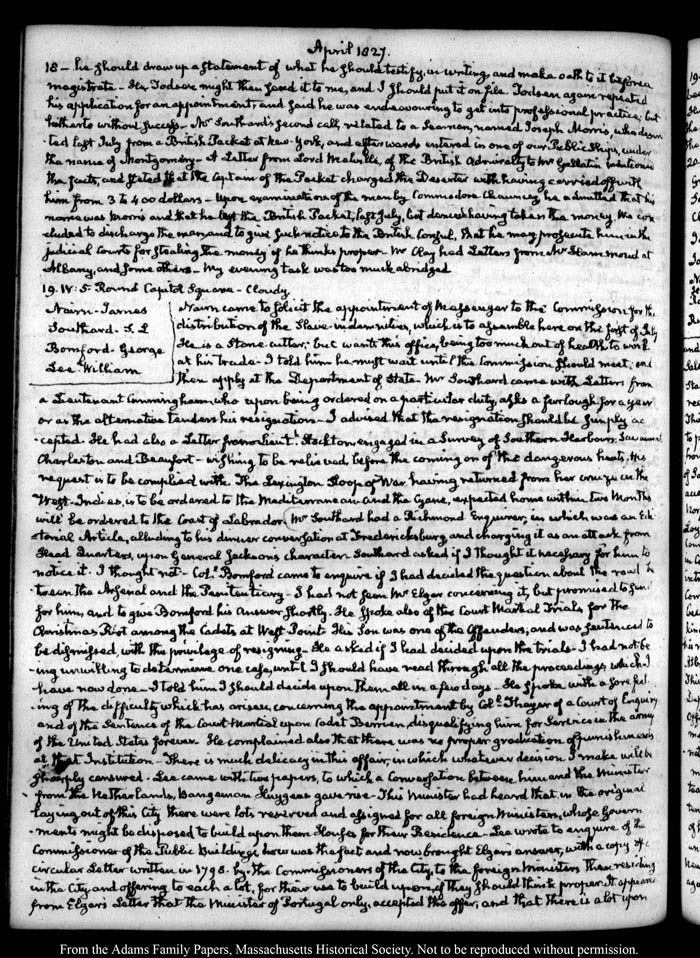 April 1827.
18 – he should draw up a statement of what he should testify, in writing, and make oath to it before a
magistrate – He, Todson might then send it to me, and I should put it on file. Todson again repeated
his application for an appointment, and said he was endeavouring to get into professional practice, but
hitherto without success – Mr Southard's second call, related to a Seaman, named Joseph Morris, who deser-
ted last July from a British Packet at New-York, and afterwards entered in one of our Public Ships, under
the name of Montgomery – A Letter from Lord Melville, of the British Admiralty to Mr Gallatin mentions
the facts, and stated that the Captain of the Packet charged the Deserter with having carried off with
him from 3 to 400 dollars – Upon examination of the man by Commodore Chauncey, he admitted that his
name was Morris and that he left the British Packet, last July, but denied having taken the money. We con-
cluded to discharge the man and to give such notice to the British Consul, that he may prosecute him in the
judicial Courts for stealing the money if he thinks proper – Mr Clay had Letters from Mr Hammond at
Albany, and some others – My evening task was too much abridged
19. IV: 5. Round Capitol Square – Cloudy.
Nairn – James
Southard – S. L
Bomford – George
Lee William
Nairn came to solicit the appointment of Messenger to the Commission for the
distribution of the Slave indemnities, which is to assemble here on the first of July
He is a Stone-cutter; but wants this office, being too much out of health to work
at his trade – I told him he must wait until the Commission should meet, and
then apply at the Department of State – Mr Southard came with Letters from
a Lieutenant Cunningham who upon being ordered on a particular duty, asks a furlough for a year
or as the alternative tenders his resignation – I advised that the resignation should be simply ac-
cepted. He had also a Letter from Lieutt Stockton engaged in a Survey of Southern Harbours, Savannah
Charleston and Beaufort – wishing to be relieved, before the coming on of the dangerous heats. His
request is to be complied with. The Lexington Sloop of War, having returned from her cruize in the
West-Indies, is to be ordered to the Mediterranean and the Cyane, expected home within two Months
will be ordered to the Coast of Labrador. Mr Southard had a Richmond Enquirer, in which was an Edi-
torial Article, alluding to his dinner conversation at Fredericksburg, and charging it as an attack from
Head Quarters, upon General Jackson's character. Southard asked if I thought it necessary for him to
notice it. I thought not – Coll Bomford came to enquire if I had decided the question about the road be-
tween the Arsenal and the Penitentiary – I had not seen Mr Elgar concerning it, but promised to send
for him, and to give Bomford his answer shortly. He spoke also of the Court Martial Trials, for the
Christmas Riot among the Cadets at West Point. His Son was one of the Offenders, and was sentenced to
be dismissed, with the privilege of resigning – He asked if I had decided upon the trials – I had not be-
ing unwilling to determine one case, until I should have read through all the proceedings which I
have now done – I told him I should decide upon them all in a few days – He spoke with a sore feel-
ing of the difficulty which has arisen, concerning the appointment by Coll Thayer of a Court of Enquiry
and of the Sentence of the Court Martial upon Cadet Berrien, disqualifying him for Service in the army
of the United States forever. He complained also that there was no proper graduation of punishments
at that Institution. There is much delicacy in this affair, in which whatever decision I make will be
sharply censured – Lee came with two papers, to which a Conversation between him and the Minister
from the Netherlands, Bangeman Huygens gave rise – This Minister had heard that in the original
laying out of this City there were lots reserved and assigned for all foreign Ministers, whose Govern-
ments might be disposed to build upon them Houses for their Residence – Lee wrote to enquire of the
Commissioner of the Public Buildings, how was the fact and now brought Elgar's answer, with a copy of a
circular Letter written in 1798. by the Commissioners of the City, to the foreign Ministers then residing
in the City and offering to each a lot, for their use to build upon, if they should think proper. It appears
from Elgar's Letter that the Minister of Portugal only, accepted the offer, and that there is a lot upon
From the Adams Family Papers, Massachusetts Historical Society. Not to be reproduced without permission.